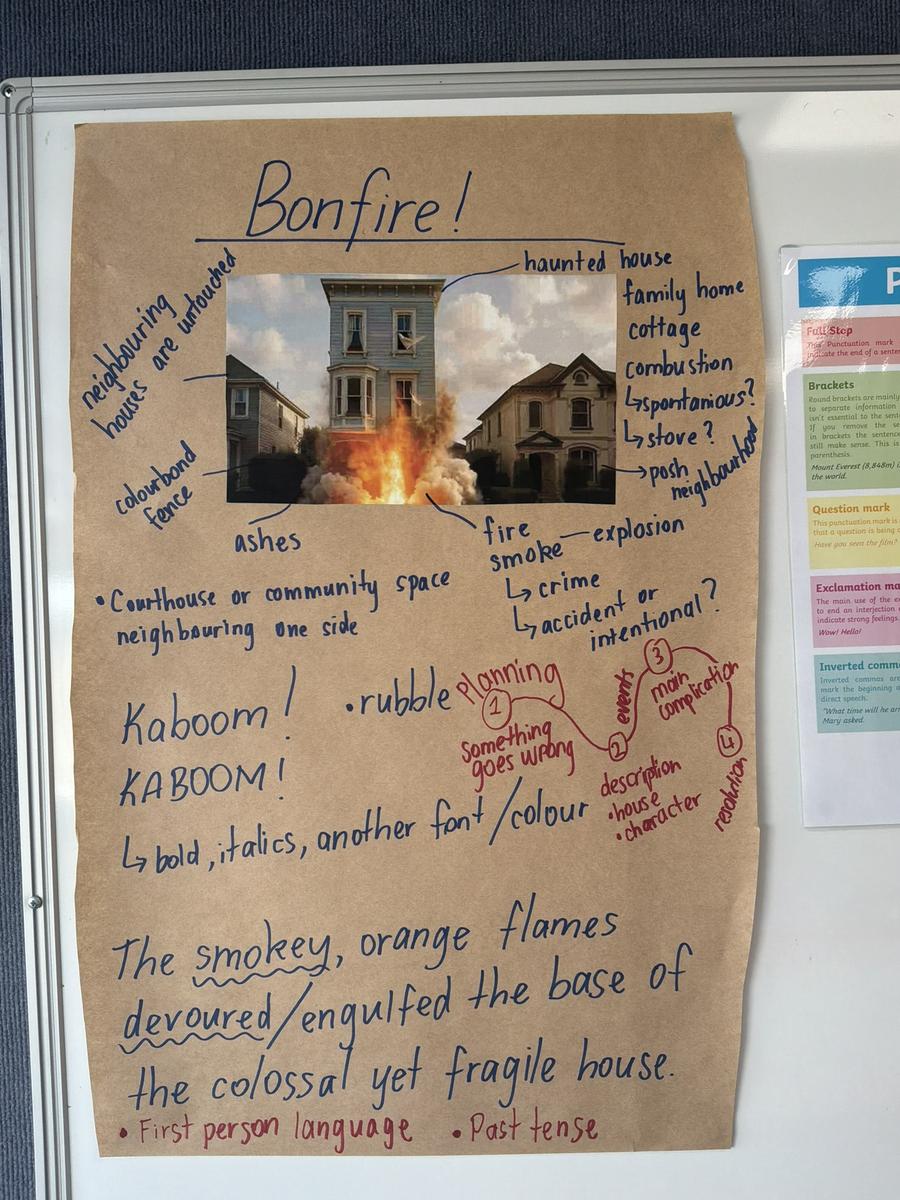 Bonfire!
neighbouring
houses are untouched
colourbond
fence
ashes
haunted house
family home
cottage
combustion
↳spontanious?
↳stove?
→posh
neighbourhood
fire
smoke—explosion
↳crime
↳accident or
intentional?
•Courthouse or community space
neighbouring one side
Kaboom!
•rubble
KABOOM!
↳bold, italics, another font/colour
Planning
1
Something
goes wrong
2
events
description
•house
•character
3
main
complication
4
resolution
The smokey, orange flames
devoured/engulfed the base of
the colossal yet fragile house.
• First person language
• Past tense
P
Full Stop
This Punctuation mark
indicate the end of a
Brackets
Round brackets are mainly
to separate information
isn't essential to the
If you remove the
in brackets the
still make sense. This is
parenthesis.
Mount Everest (8,848m) i
the world.
Question mark
This punctuation mark is
that a question is being
Have you seen the film?
Exclamation ma
The main use of the
to end an interjection
indicate strong feelings.
Wow! Hello!
Inverted comm
Inverted commas are
mark the beginning
direct speech.
"What time will he
Mary asked.